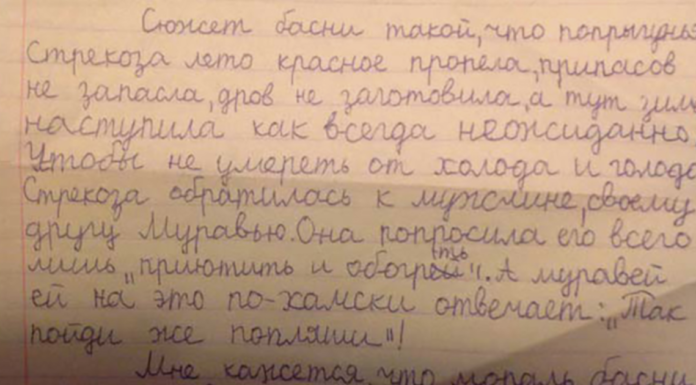 Сюжет басни такой, что попрыгунья
Стрекоза лето красное пропела, припасов
не запасла, дров не заготовила, а тут зима
наступила как всегда неожиданно.
Чтобы не умереть от холода и голода
Стрекоза обратилась к мужчине, своему
другу Муравью. Она попросила его всего
лишь „приютить и обогреть". А муравей
ей на это по-хамски отвечает: „Так
пойди же попляши"!
Мне кажется, что мораль басни